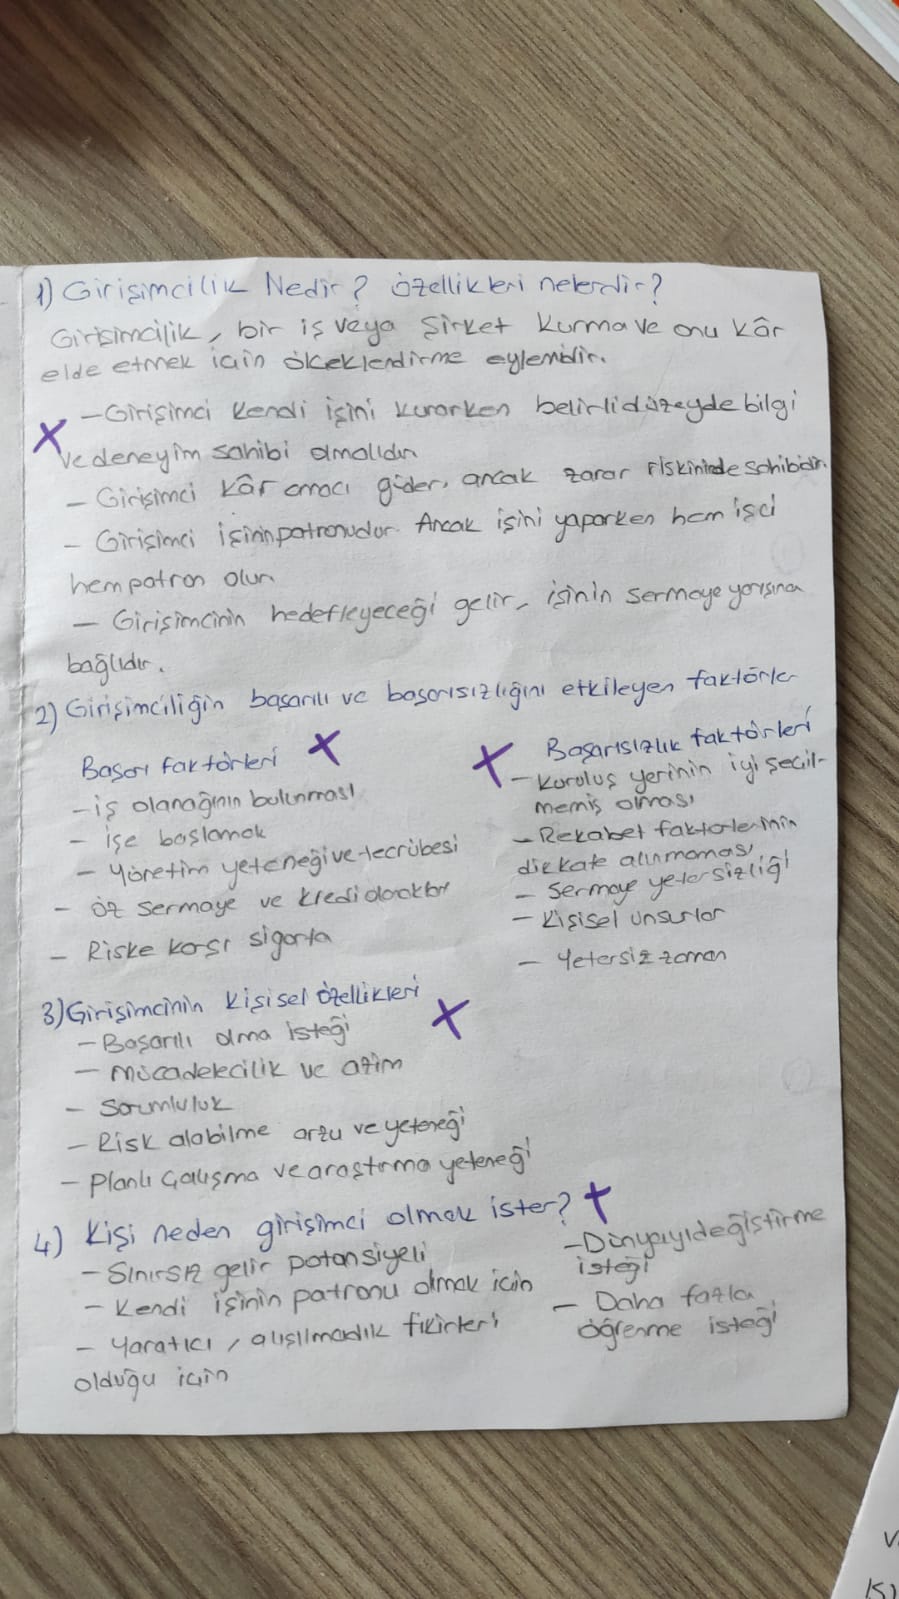 1) Girişimcilik Nedir? Özellikleri nelerdir?
Girişimcilik, bir iş veya Şirket kurma ve onu kâr
elde etmek için ölçeklendirme eylemidir.
X -Girişimci kendi işini kurarken belirli düzeyde bilgi
ve deneyim sahibi olmalıdır
- Girişimci kâr amacı güder, ancak zarar riskininde sahibidir.
- Girişimci işinin patronudur. Ancak işini yaparken hem işçi
hem patron olur
- Girişimcinin hedefleyeceği gelir, işinin sermaye yapısına
bağlıdır.
2) Girişimciliğin başarılı ve başarısızlığını etkileyen faktörler
Başarı faktörleri X
-iş olanağının bulunması
- işe başlamak
- Yönetim yeteneği ve tecrübesi
- öz sermaye ve kredi olanakları
- Riske karşı sigorta
X Başarısızlık faktörleri
- Kuruluş yerinin iyi seçil-
memiş olması
- Rekabet faktörlerinin
dikkate alınmaması
- Sermaye yetersizliği
- Kişisel unsurlar
- Yetersiz zaman
3) Girişimcinin kişisel özellikleri X
- Başarılı olma isteği
- Mücadelecilik ve azim
- Sorumluluk
- Risk alabilme arzu ve yeteneği
- Planlı Çalışma ve araştırma yeteneği
4) Kişi neden girişimci olmak ister? X
- Sınırsız gelir potansiyeli
- Kendi işinin patronu olmak için
- Yaratıcı, alışılmadık fikirleri
olduğu için
-Dünyayı değiştirme
isteği
- Daha fazla
öğrenme isteği